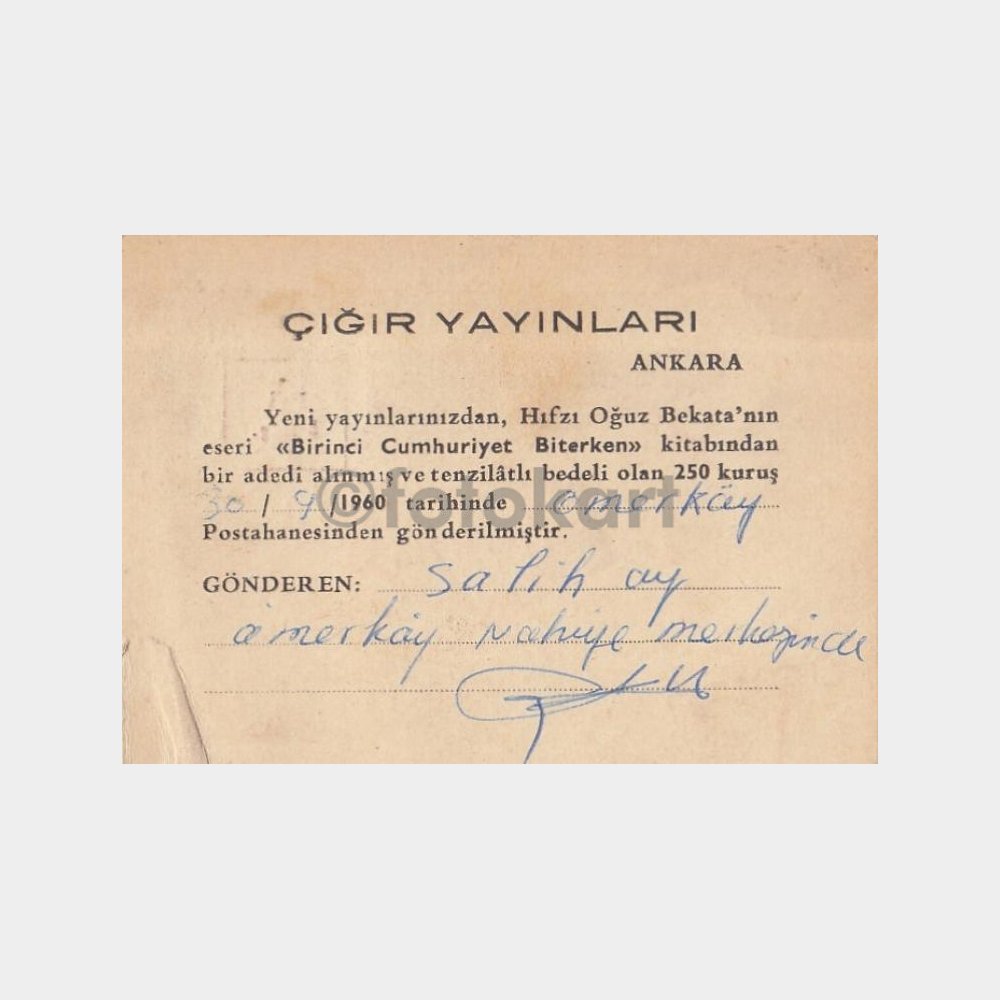 ÇIĞIR YAYINLARI
ANKARA
Yeni yayınlarınızdan, Hıfzı Oğuz Bekata'nın
eseri «Birinci Cumhuriyet Biterken» kitabından
bir adedi alınmış ve tenzilâtlı bedeli olan 250 kuruş
30 / 9 /1960 tarihinde ömerköy
Postahanesinden gönderilmiştir.
©fotokart
GÖNDEREN: Salih ay
ömerköy Nahiye merkezinde